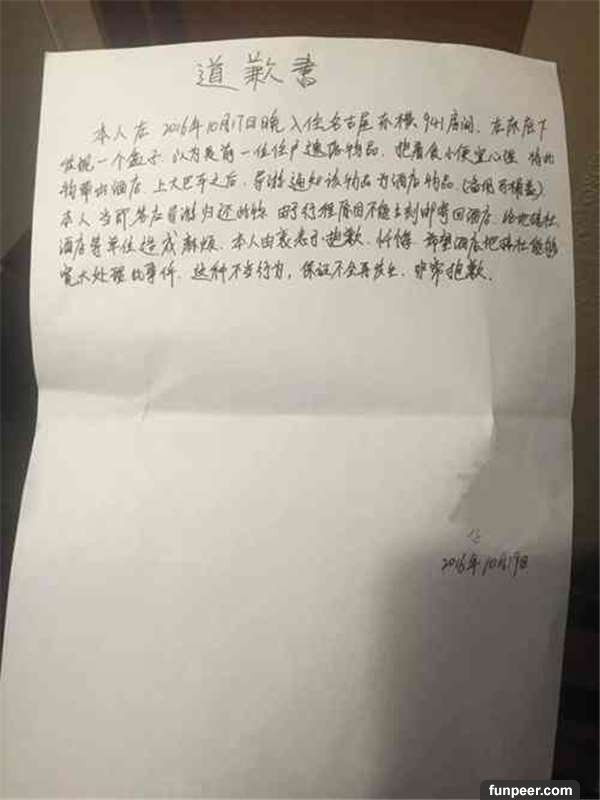 道歉書
本人在 2016年10月17日晚入住名古屋东横 941房间,在床底下
发现一个盒子,以为是前一位住户遗留物品,抱着贪小便宜心理 将此
物带出酒店,上大巴车之后,导游通知该物品为酒店物品(备用马桶盖)
本人当即答应导游归还此物 由于行程原因不能立刻邮寄回酒店,给地接社
酒店等单位造成麻烦,本人由衷表示抱歉,忏悔 希望酒店地接社能够
宽大处理此事件 这种不当行为,保证不会再发生,非常抱歉.
2016年10月19日
funpeer.com